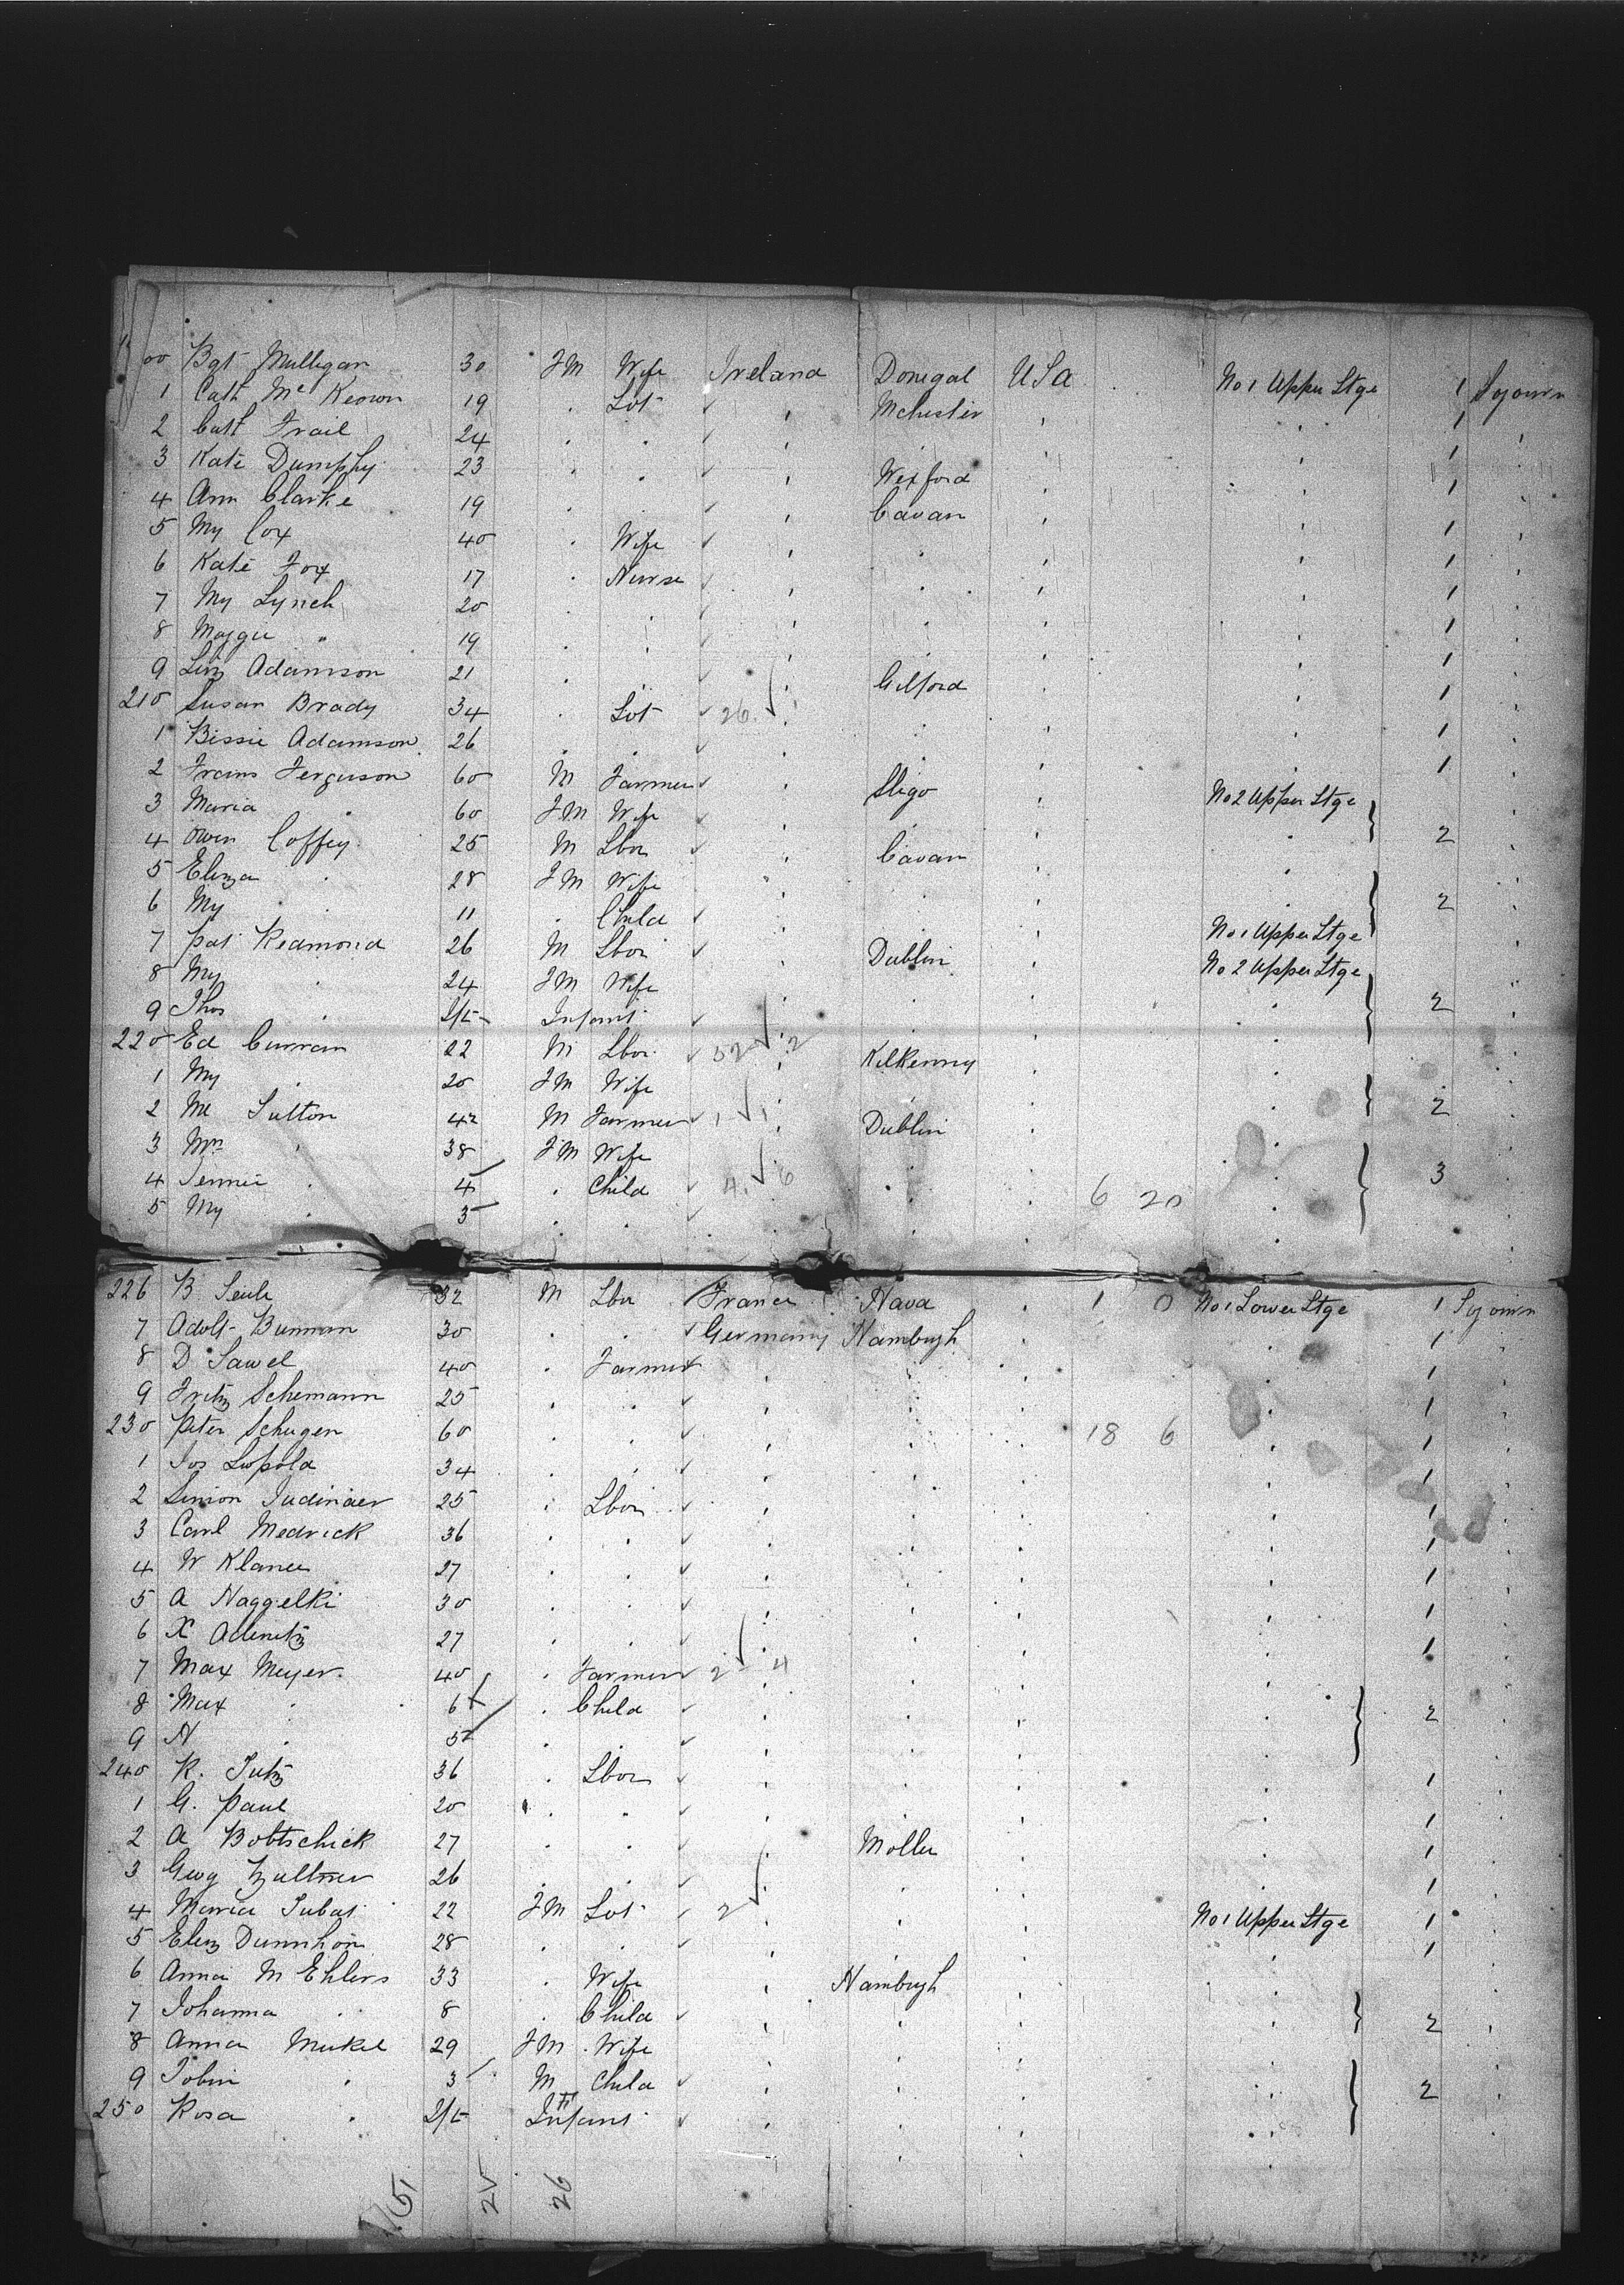 00 Bgt Mulligan 30 FM Wife Ireland Donegal USA No 1 Upper Stge 1 Sojourn
1 Cath McKeown 19 . Svt Mchester 1
2 Cath Frail 24 1
3 Kate Dumphy 23 Wexford 1
4 Ann Clarke 19 Cavan 1
5 My Cox 40 Wife 1
6 Kate Fox 17 Nurse 1
7 My Lynch 20 1
8 Maggie " 19 1
9 Liz Adamson 21 Gilford 1
210 Susan Brady 34 Svt 26 1
1 Bessie Adamson 26 1
2 Frans Ferguson 60 M Farmer Sligo No 2 Upper Stge
3 Maria " 60 FM Wife 2
4 Owen Coffey 25 M Lbor Cavan
5 Eliza " 28 FM Wife
6 My " 11 Child 2
7 Pat Redmond 26 M Lbor Dublin No 1 Upper Stge
8 My " 24 FM Wife No 2 Upper Stge
9 Thos " Infant 2
220 Ed Curran 22 M Lbor 2 Kilkenny
1 My " 20 FM Wife 2
2 Sutton 42 M Farmer 1 1 Dublin
3 Mrs " 38 FM Wife
4 Jennie " 4 Child 4 6 3
5 My " 3 6 20
226 B 32 M Lbr France Hava 1 0 No 1 Lower Stge 1 Sojourn
7 Adolf Bunman 30 Germany Hambugh 1
8 D Sawel 40 Farmer 1
9 Fritz Schemann 25 1
230 Peter Schugen 60 18 6 1
1 Jos Lopold 34 1
2 Simon 25 Lbor 1
3 Carl Medrick 36 1
4 W Klaner 27 1
5 A Naggelki 30 1
6 X 27 1
7 Max Meyer 40 Farmer 2 4
8 Max " 6 Child 2
9 N " 5
240 K. Jutz 36 Lbor 1
1 G. Paul 20 1
2 A Bobtschick 27 Moller 1
3 Geog Zultner 26 1
4 Maria Tubat 22 FM Svt 2 No 1 Upper Stge 1
5 Eliz Dunnhon 28 1
6 Anna M Ehlers 33 Wife Hambugh
7 Johanna " 8 Child 2
8 Anna Mukel 29 FM Wife
9 Tobin " 3 M Child 2
250 Rosa " Infant
51 25 26